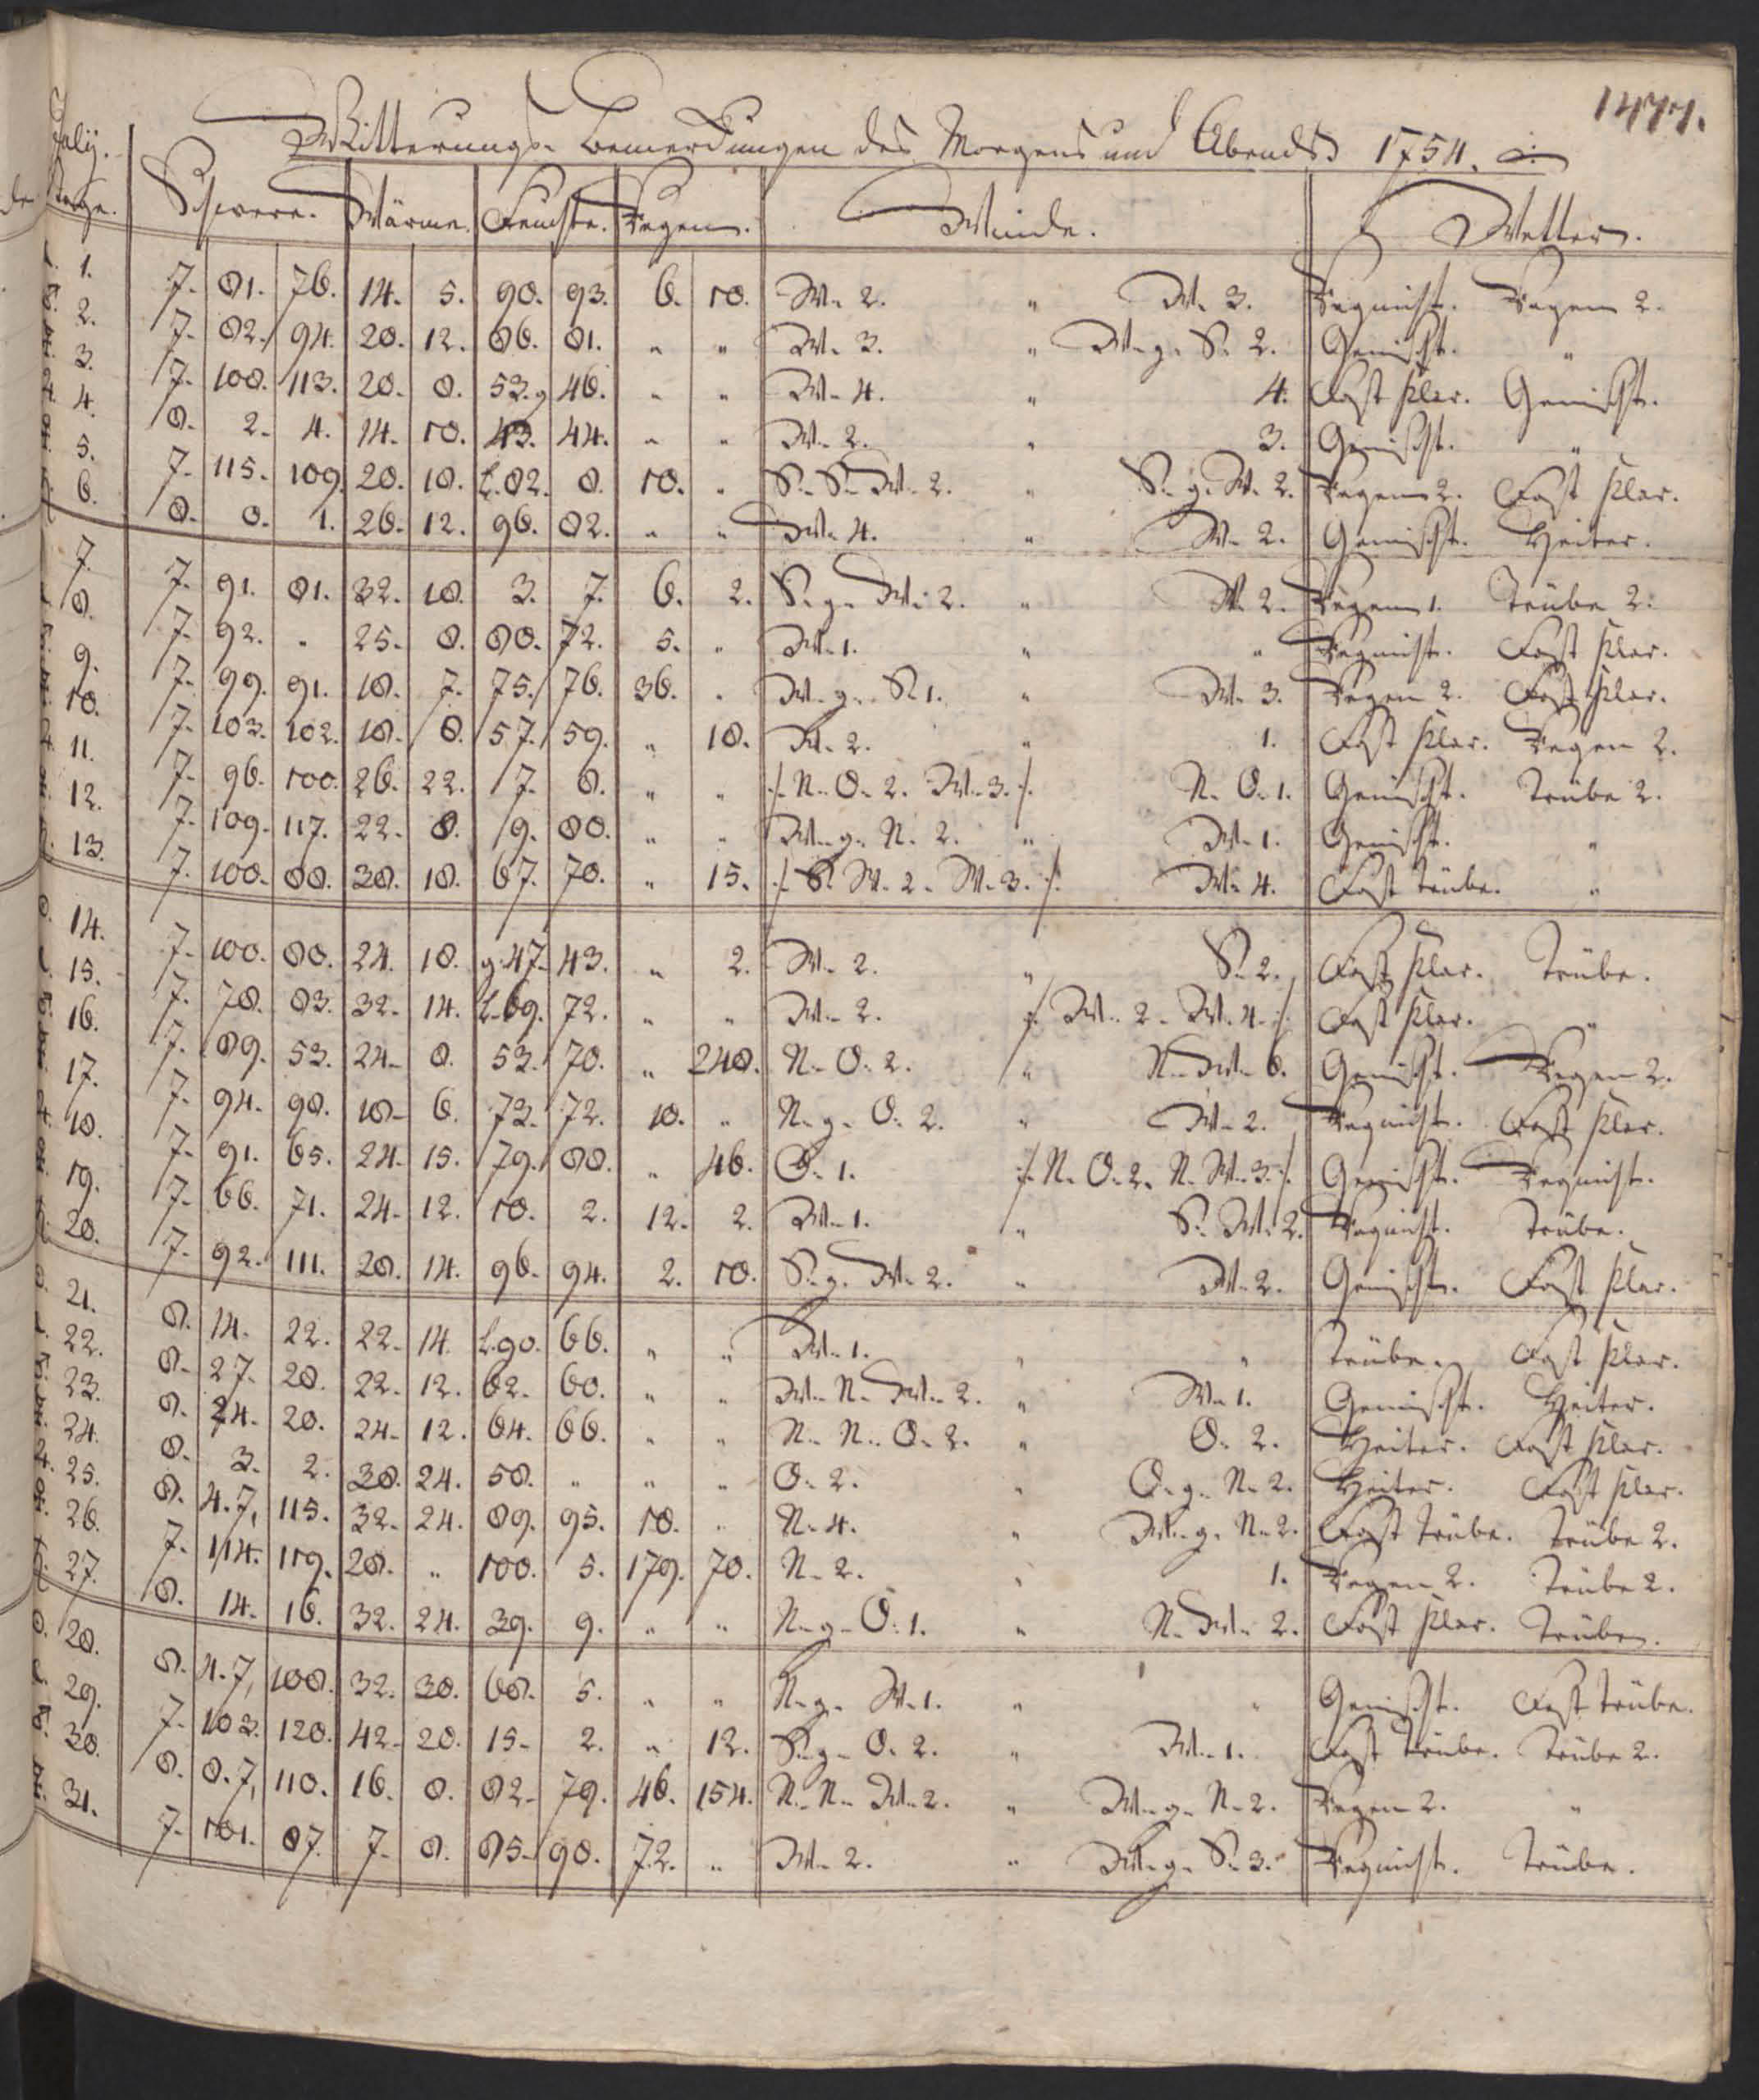 1477.
Witterungs- Bemerckungen des Morgens und Abends 1754.
Julij. Tage. Schwere. Wärme. Feuchte. Regen. Winde. Wetter.
1. 7. 81. 76. 14. 5. 90. 93. 6. 18. W. 2. " W. 3. Regnicht. Regen 2.
2. 7. 82. 94. 20. 12. 86. 81. " " W. 3. " W. g. S. 2. Gemischt. "
3. 7. 108. 113. 20. 8. 53. g 46. " " W. 4. " 4. Fast klar. Gemischt.
4. 8. 2. 4. 14. 10. 43. 44. " " W. 2. " 3. Gemischt. "
5. 7. 115. 109. 20. 18. L. 82. 8. 18. " S. S. W. 2. " S. g. W. 2. Regen 2. Fast klar.
6. 8. 0. 1. 26. 12. 96. 82. " " W. 4. " W. 2. Gemischt. Heiter.
7. 7. 91. 81. 32. 18. 3. 7. 6. 2. S. g. W. 2. " W. 2. Regen 1. Trübe 2.
8. 7. 92. " 25. 8. 80. 72. 5. " W. 1. " " Regnicht. Fast klar.
9. 7. 99. 91. 18. 7. 75. 76. 36. " W. g. S. 1. " W. 3. Regen 2. Fast klar.
10. 7. 103. 102. 18. 8. 57. 59. " 18. W. 2. " 1. Fast klar. Regen 2.
11. 7. 96. 100. 26. 22. 7. 8. " " :/. N. O. 2. W. 3. /: N. O. 1. Gemischt. Trübe 2.
12. 7. 109. 117. 22. 8. 9. 80. " " W. g. N. 2. " W. 1. Gemischt. "
13. 7. 100. 88. 30. 18. 67. 70. " 15. :/. S. W. 2. W. 3. /: W. 4. Fast trübe. "
14. 7. 100. 80. 24. 18. g. 47. 43. " 2. W. 2. " S. 2. Fast klar. Trübe.
15. 7. 78. 83. 32. 14. L. 69. 72. " " W. 2. /: W. 2. W. 4. /: Fast klar. "
16. 7. 89. 53. 24. 8. 53. 70. " 240. N. O. 2. " N. W. 6. Gemischt. Regen 2.
17. 7. 94. 98. 18. 6. 73. 72. 10. " N. g. O. 2. " W. 2. Regnicht. Fast klar.
18. 7. 91. 65. 24. 15. 79. 88. " 46. O. 1. /: N. O. 2. N. W. 3. /: Gemischt. Regnicht.
19. 7. 66. 71. 24. 12. 10. 2. 12. 2. W. 1. " S. W. 2. Regnicht. Trübe.
20. 7. 92. 111. 28. 14. 96. 94. 2. 10. S. g. W. 2. " W. 2. Gemischt. Fast klar.
21. 8. 14. 22. 22. 14. L. 90. 66. " " W. 1. " " Trübe. Fast klar.
22. 8. 27. 28. 22. 12. 62. 60. " " W. N. W. 2. " W. 1. Gemischt. Heiter.
23. 8. 24. 20. 24. 12. 64. 66. " " N. N. O. 2. " O. 2. Heiter. Fast klar.
24. 8. 3. 2. 30. 24. 58. " " " O. 2. " O. g. N. 2. Heiter. Fast klar.
25. 8. 4. 7, 115. 32. 24. 89. 95. 18. " N. 4. " W. g. N. 2. Fast trübe. Trübe 2.
26. 7. 114. 119. 28. " 100. 5. 179. 70. N. 2. " 1. Regen 2. Trübe 2.
27. 8. 14. 16. 32. 24. 39. 9. " " N. g. O. 1. " N. W. 2. Fast klar. Trübe.
28. 8. 4. 7, 108. 32. 30. 68. 5. " " N. g. W. 1. " " Gemischt. Fast trübe.
29. 7. 103. 120. 42. 20. 15. 2. " 12. S. g. O. 2. " W. 1. Fast trübe. Trübe 2.
30. 8. 8. 7, 110. 16. 8. 82. 79. 46. 154. N. N. W. 2. " W. g. N. 2. Regen 2. "
31. 7. 101. 87. 7. 8. 85. 90. 72. " W. 2. " W. g. S. 3. Regnicht. Trübe.